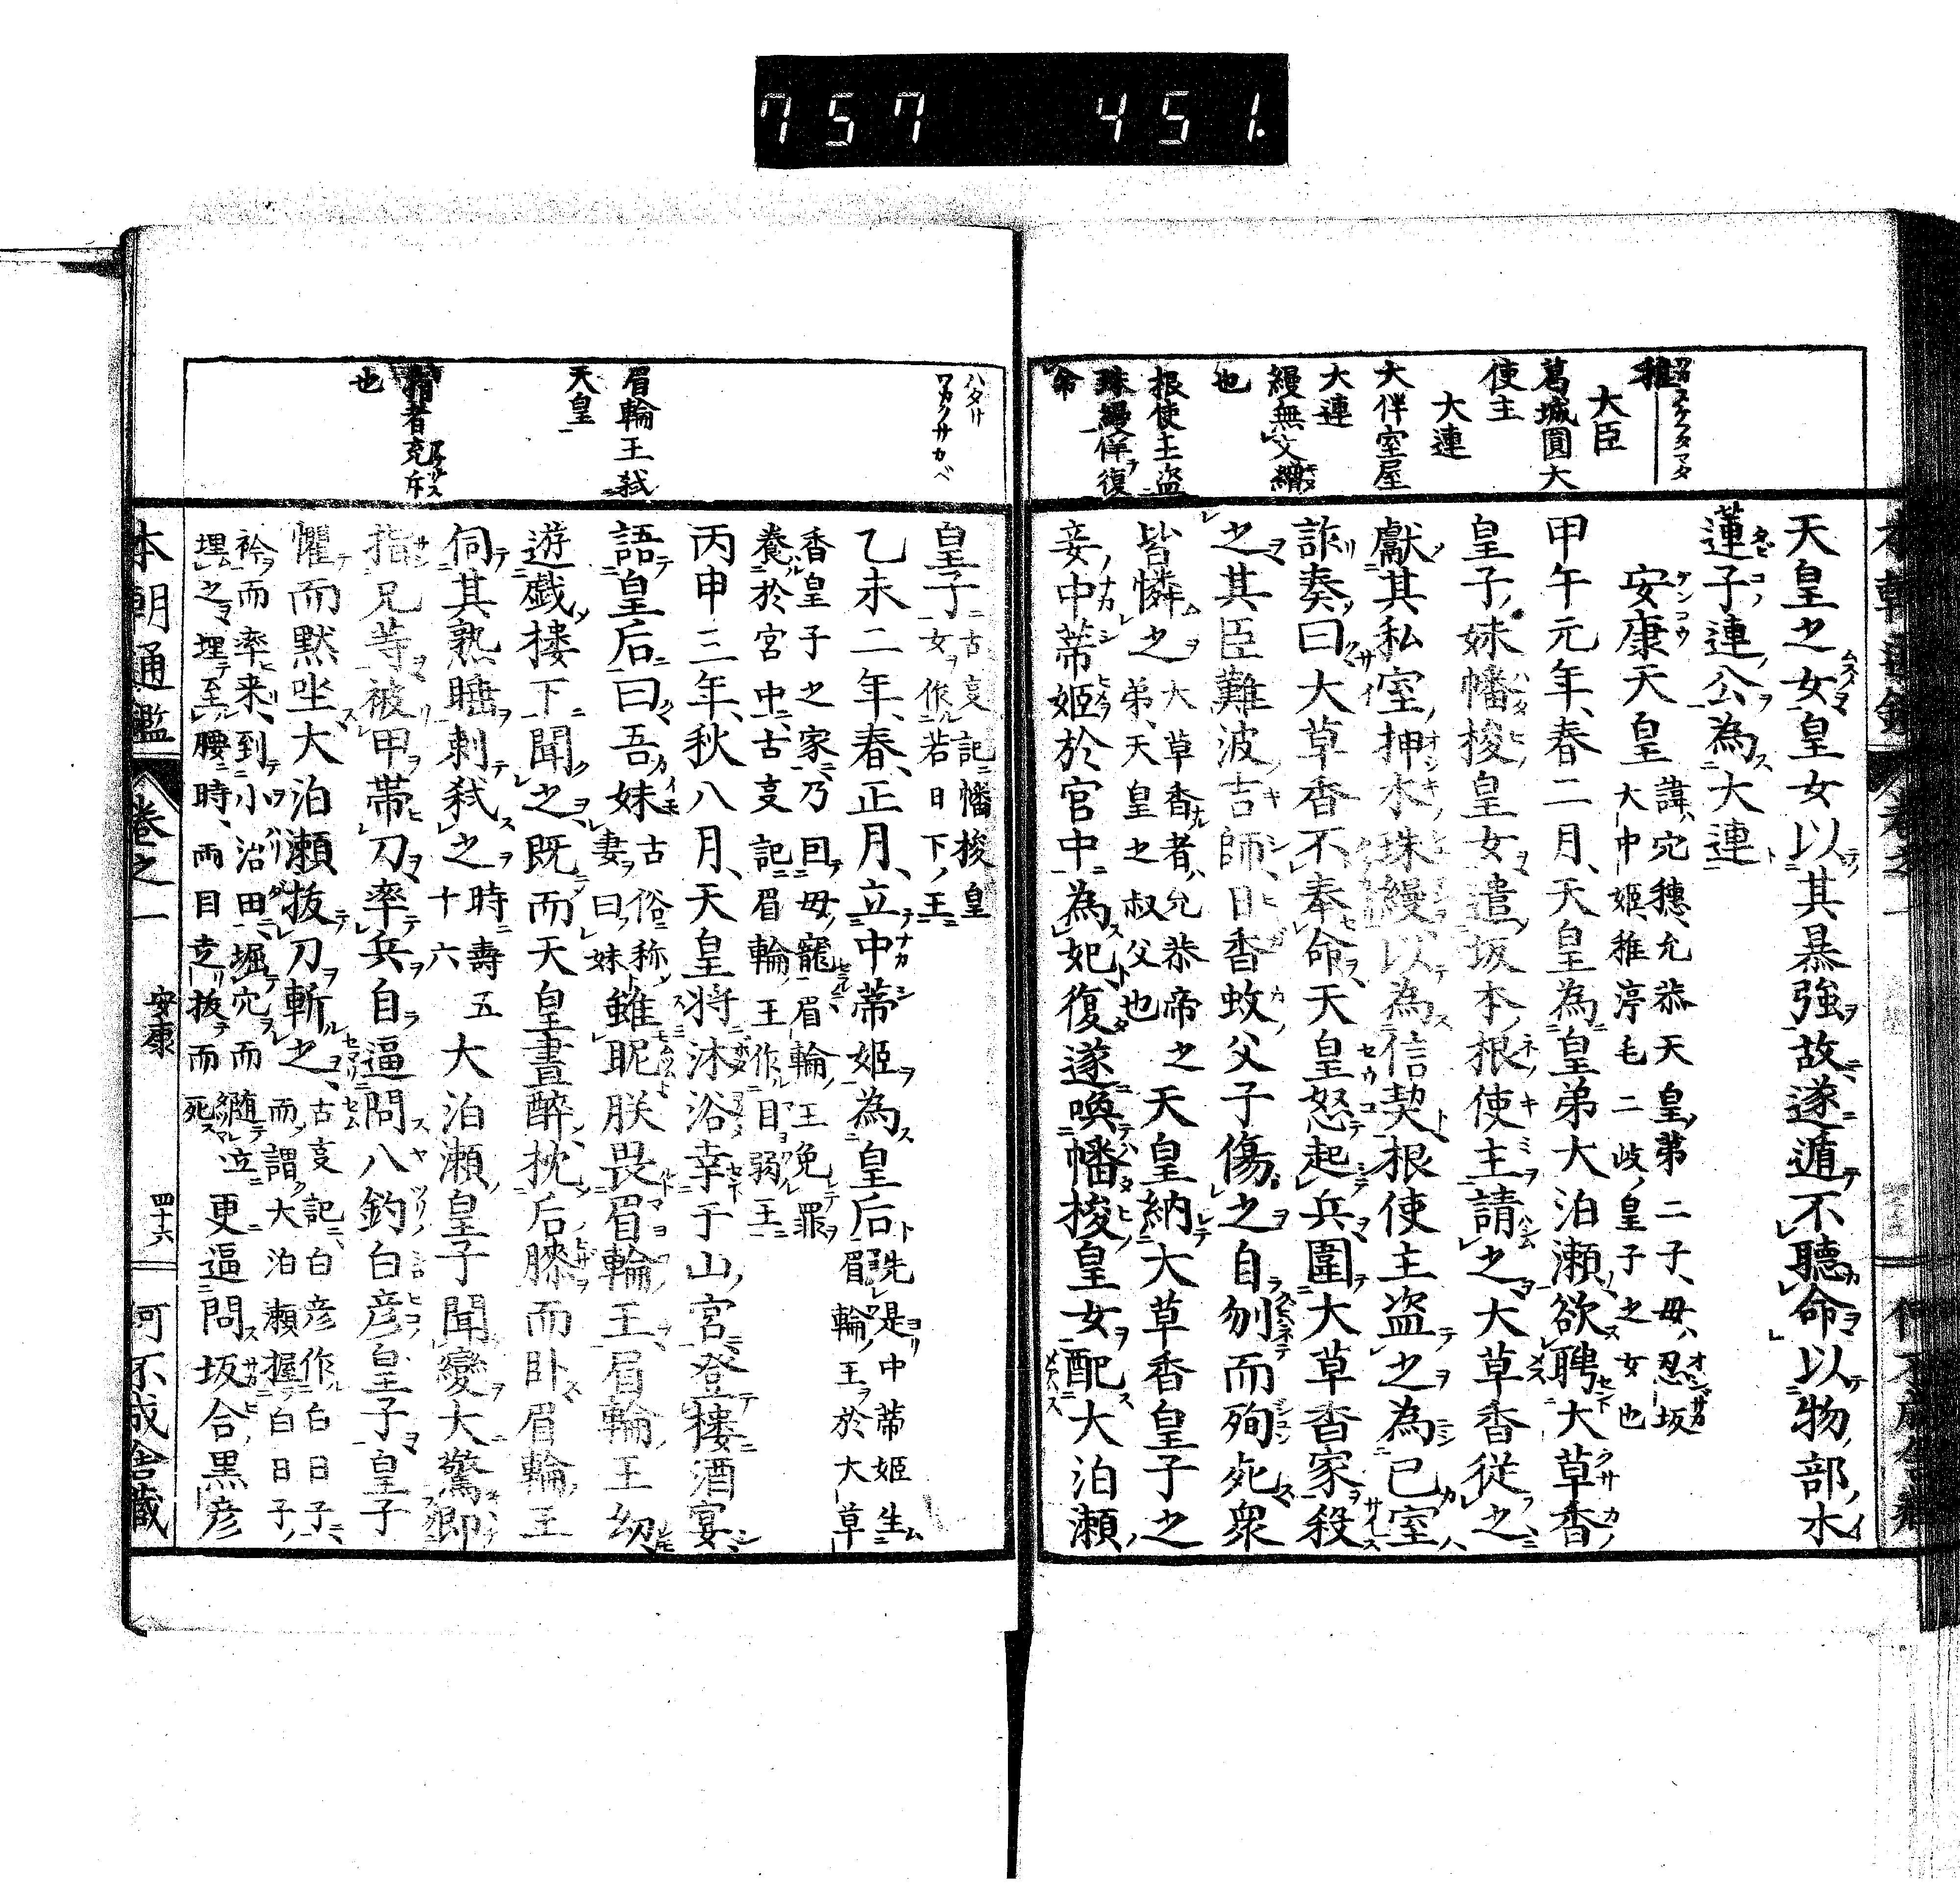 757 451.
天皇之女皇女以其暴強故遂遁不聽命以物部水
蓮子連公為大連
安康天皇
諱穴穗允恭天皇第二子母忍坂
大中姫稚渟毛二岐皇子之女也
甲午元年春二月天皇為皇弟大泊瀬欲聘大草香
皇子妹幡梭皇女遣坂本根使主請之大草香従之
獻其私室押木珠縵以為信契根使主盗之為己室
詐奏曰大草香不奉命天皇怒起兵圍大草香家殺
之其臣難波吉師日香蚊父子傷之自刎而殉死衆
皆憐之
大草香者允恭帝之
弟天皇之叔父也
天皇納大草香皇子之
妾中蒂姫於宮中為妃復遂喚幡梭皇女配大泊瀬
大臣
葛城圓大
使主
大連
大伴室屋
大連
縵無文繒
也
根使主盗
珠縵佯復
命
皇子
古亊記幡梭皇
女作若日下王
乙未二年春正月立中蒂姫為皇后
先是中蒂姫生
眉輪王於大草
香皇子之家乃囙毋寵眉輪王免罪
養於宮中古亊記眉輪王作目弱王
丙申三年秋八月天皇将沐浴幸于山宮登樓酒宴
語皇后曰吾妹
古俗称
妻曰妹
雖眤朕畏眉輪王眉輪王幼
遊戯樓下聞之既而天皇晝醉枕后膝而卧眉輪王
伺其熟睡刺弑之
時壽五
十六
大泊瀬皇子聞變大驚卿
指兄等被甲帯刀率兵自逼問八釣白彦皇子皇子
懼而黙坐大泊瀬抜刀斬之
古亊記白彦作白日子
而謂大泊瀬握白日子
衿而率来到小治田堀穴而随立
埋之埋至腰時両目走抜而死
更逼問坂合黒彦
ハタサ
ワカクサカベ
眉輪王弑
天皇
指者充斥
也
本朝通鑑
卷之一
安康
四十六
何不成舎藏